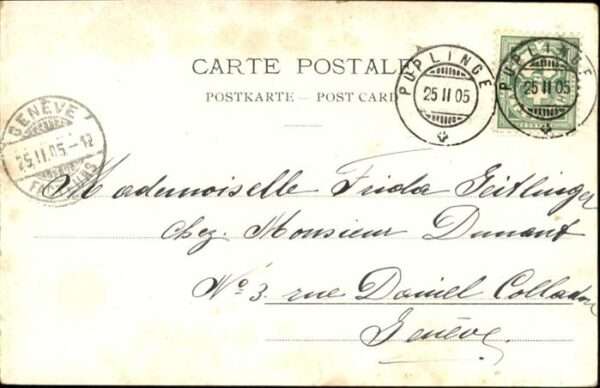 CARTE POSTALE
POSTKARTE – POST CARD
PUPLINGE
25 II 05
PUPLINGE
25 II 05
GENÈVE
25.II.05.–12
Mademoiselle Frida Zeitlinger
chez Monsieur Dunant
No 3. rue Daniel Colladon
Genève.